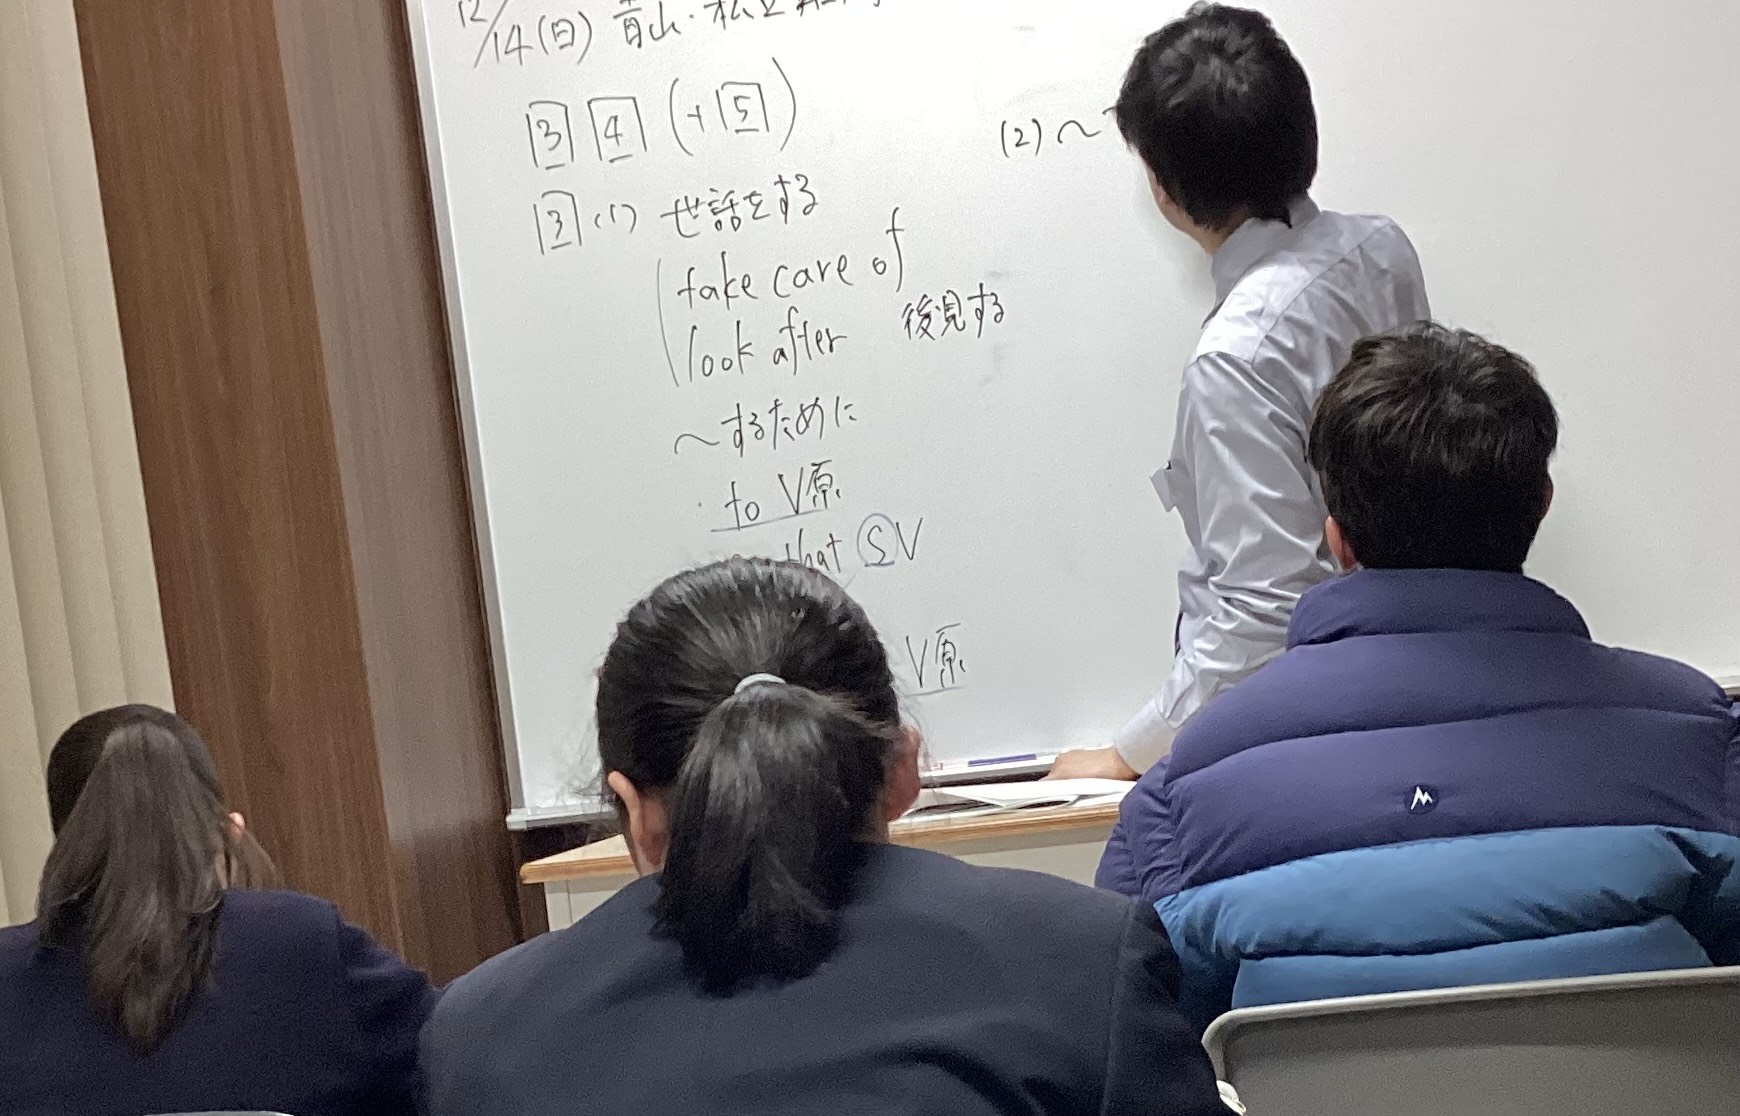 12/14(日) 青山・私立
3 4 (+5)
3 (1) 世話をする
take care of
look after 後見する
〜するために
・to V原
that S V
V原
(2) 〜